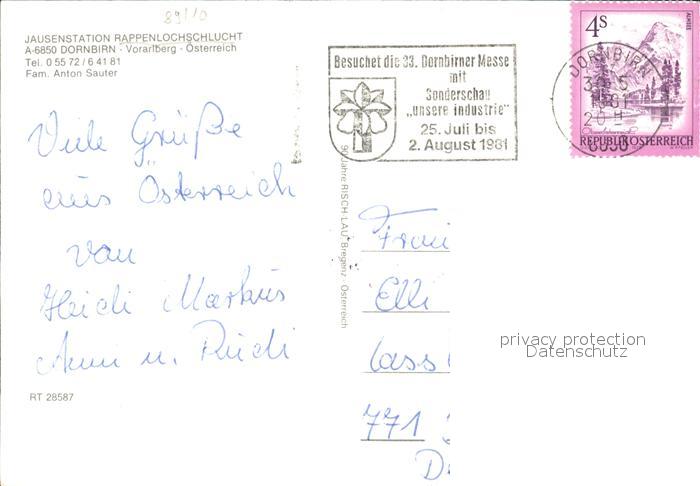 89/10
JAUSENSTATION RAPPENLOCHSCHLUCHT
A-6850 DORNBIRN - Vorarlberg - Österreich
Tel. 0 55 72 / 6 41 81
Fam. Anton Sauter
Viele Grüße
aus Österreich
von
Heidi Markus
Anni u. Ruedi
RT 28587
Besuchet die 33. Dornbirner Messe
mit
Sonderschau
„unsere industrie"
25. Juli bis
2. August 1981
90 Jahre RISCH-LAU, Bregenz - Österreich
4S
ALMSEE
REPUBLIK ÖSTERREICH
DORNBIRN
Frau
Elli
771
privacy protection
Datenschutz